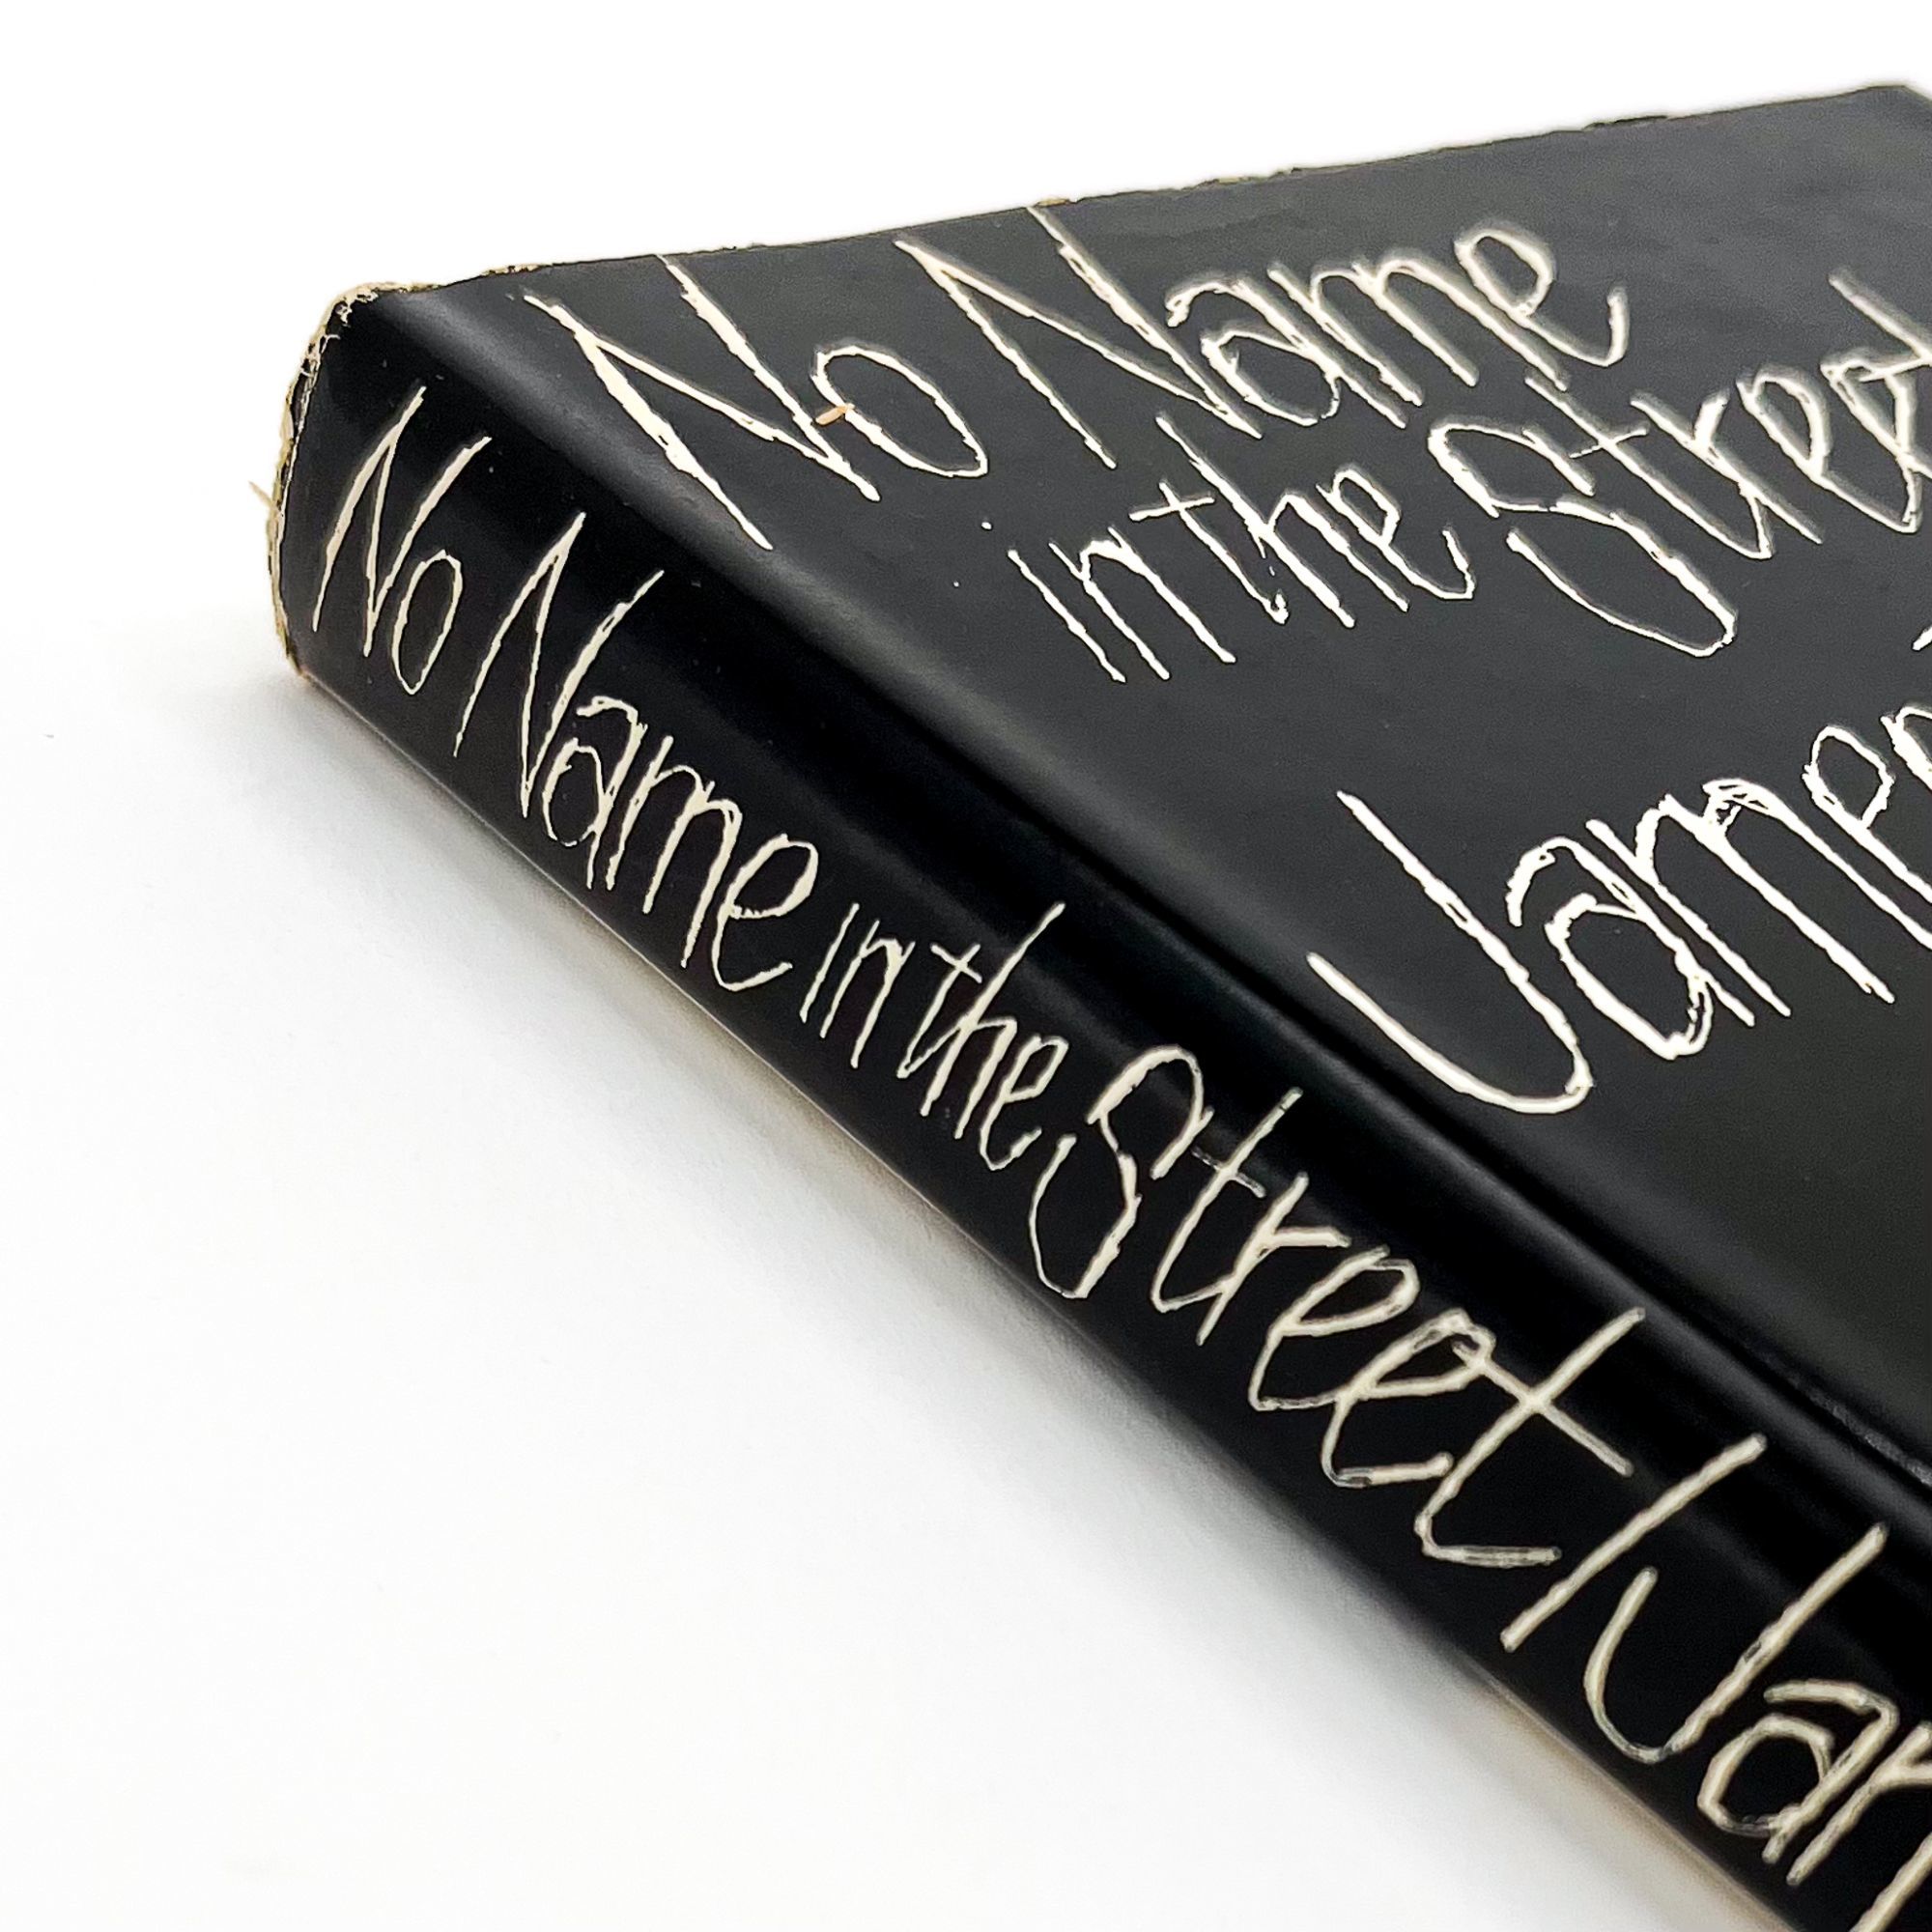 No Name
in the Street
James
No Name in the Street / Jam